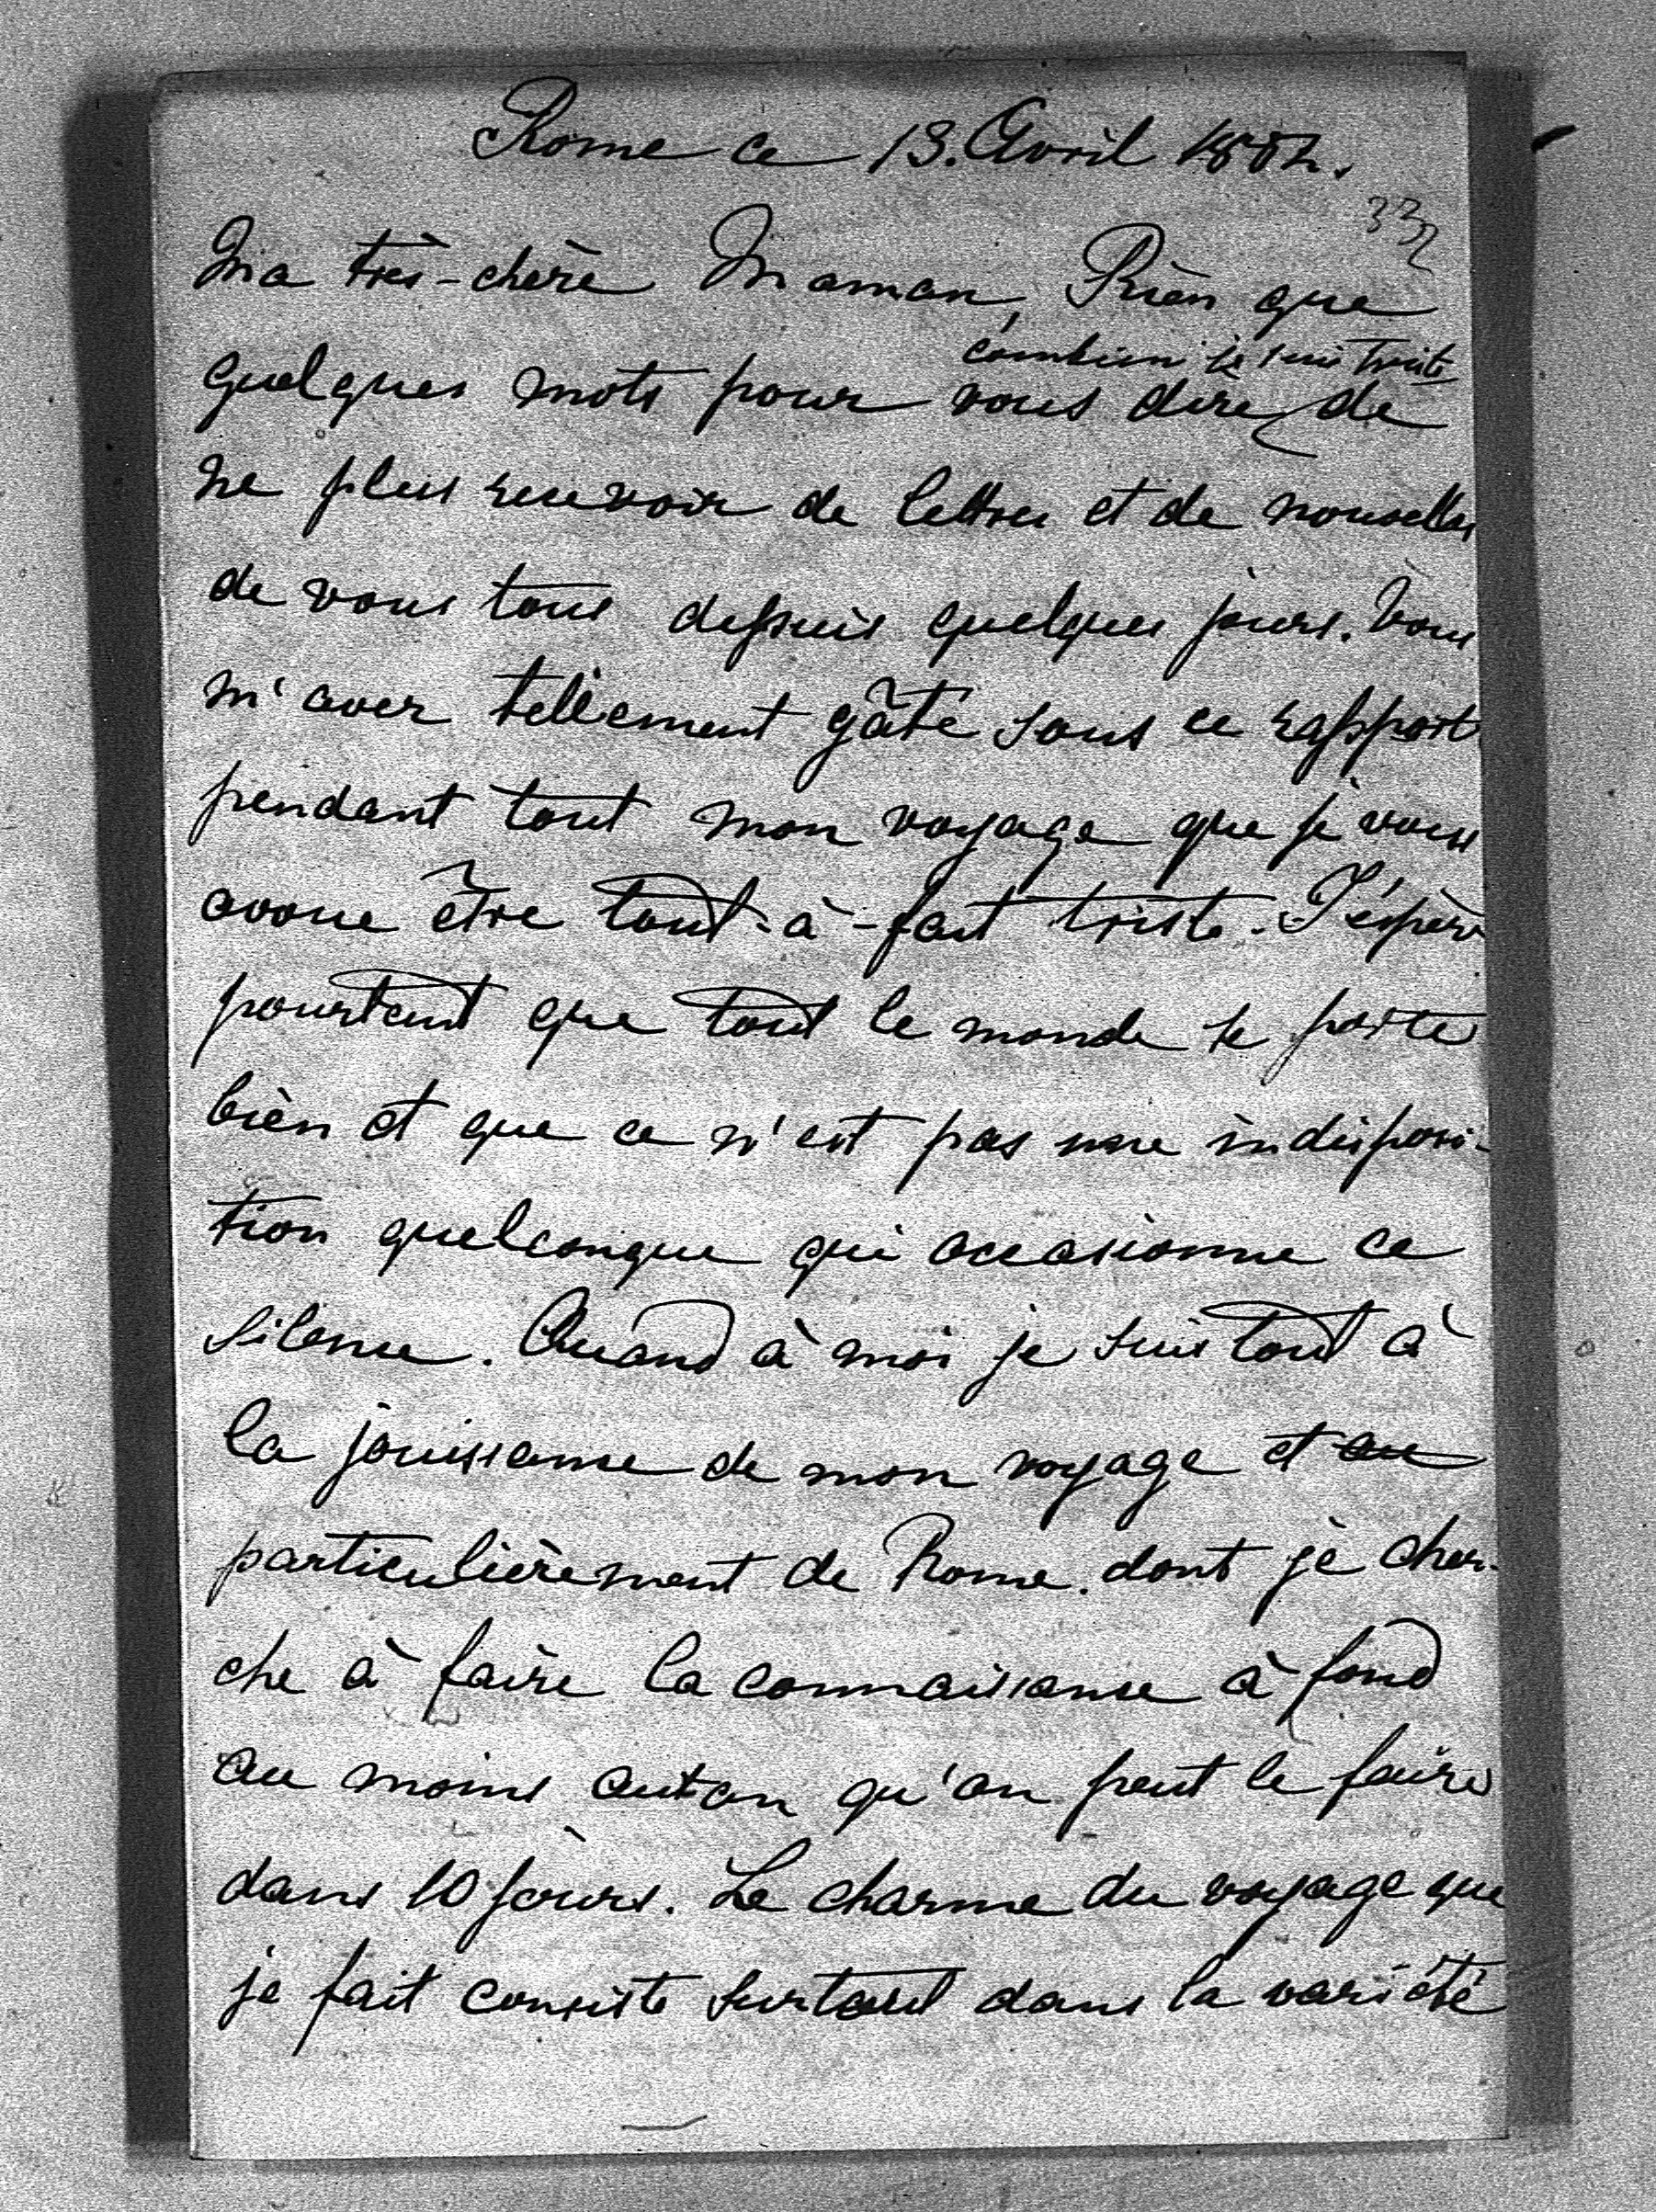 Rome ce 13. Avril 1882.
332
Ma très-chère Maman, Rien que
combien je suis triste
quelques mots pour vous dire de
ne plus recevoir de lettres et de nouvelles
de vous tous depuis quelques jours. Vous
m'avez tellement gâté sous ce rapport
pendant tout mon voyage que je vous
avoue être tout-à-fait triste. J'espère
pourtant que tout le monde se porte
bien et que ce n'est pas une indisposi-
tion quelconque qui occasionne ce
silence. Quand à moi je suis tout à
la jouissance de mon voyage et au
particulièrement de Rome. dont je cher-
che à faire la connaissance à fond
au moins autan qu'on peut le faire
dans 10 jours. Le charme du voyage que
je fait consiste surtout dans la variété